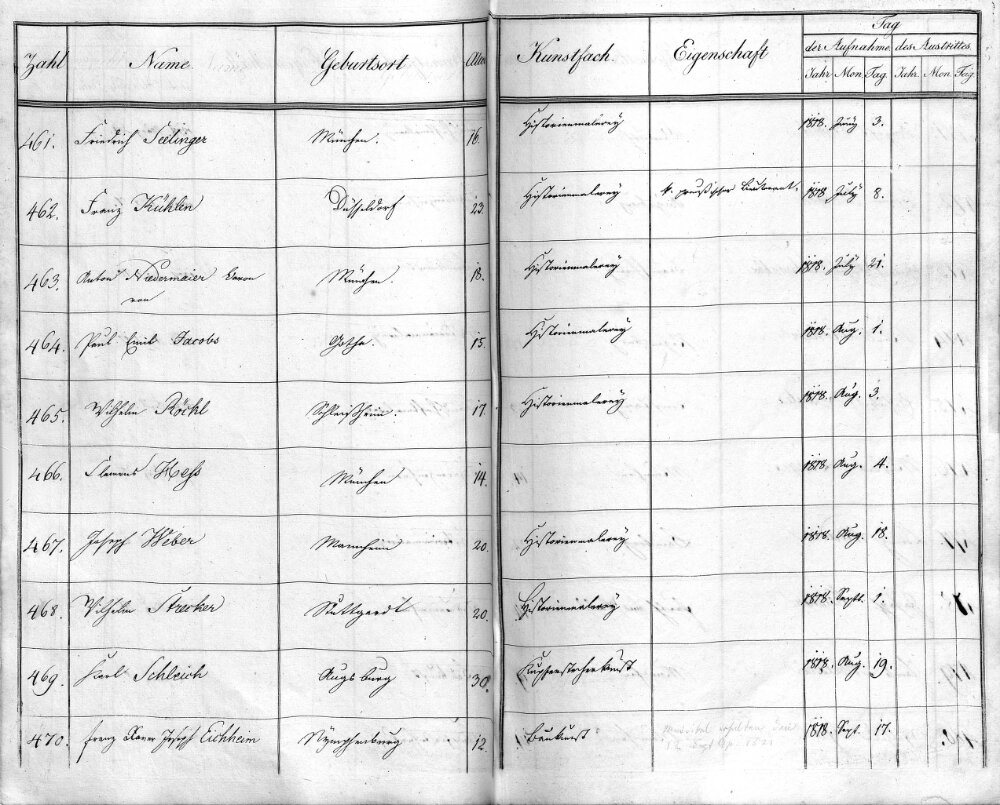 Tag
Zahl Name Geburtsort Alter Kunstfach. Eigenschaft der Aufnahme. des Austrittes.
Jahr Mon. Tag. Jahr. Mon. Tag.
461. Friedrich Seelinger München. 16. Historienmalerey 1818. July 3.
462. Franz Kühlen Düsseldorf 23. Historienmalerey k. preußischer Lieutenant. 1818. July 8.
463. Anton Niedermaier Baron München. 18. Historienmalerey 1818. July 21.
von
464. Paul Emil Jacobs Gotha. 15. Historienmalerey 1818. Aug. 1.
465. Wilhelm Röckl Schleißheim. 17. Historienmalerey 1818. Aug. 3.
466. Clemens Hess München 14. 1818. Aug. 4.
467. Joseph Weber Mannheim 20. Historienmalerey 1818. Aug. 18.
468. Wilhelm Strecker Stuttgardt 20. Historienmalerey 1818. Sept. 1.
469. Karl Schleich Augsburg 30. Kupferstecherkunst 1818. Aug. 19.
470. Franz Xaver Joseph Eichheim Nymphenburg 12. Baukunst 1818. Sept. 17.